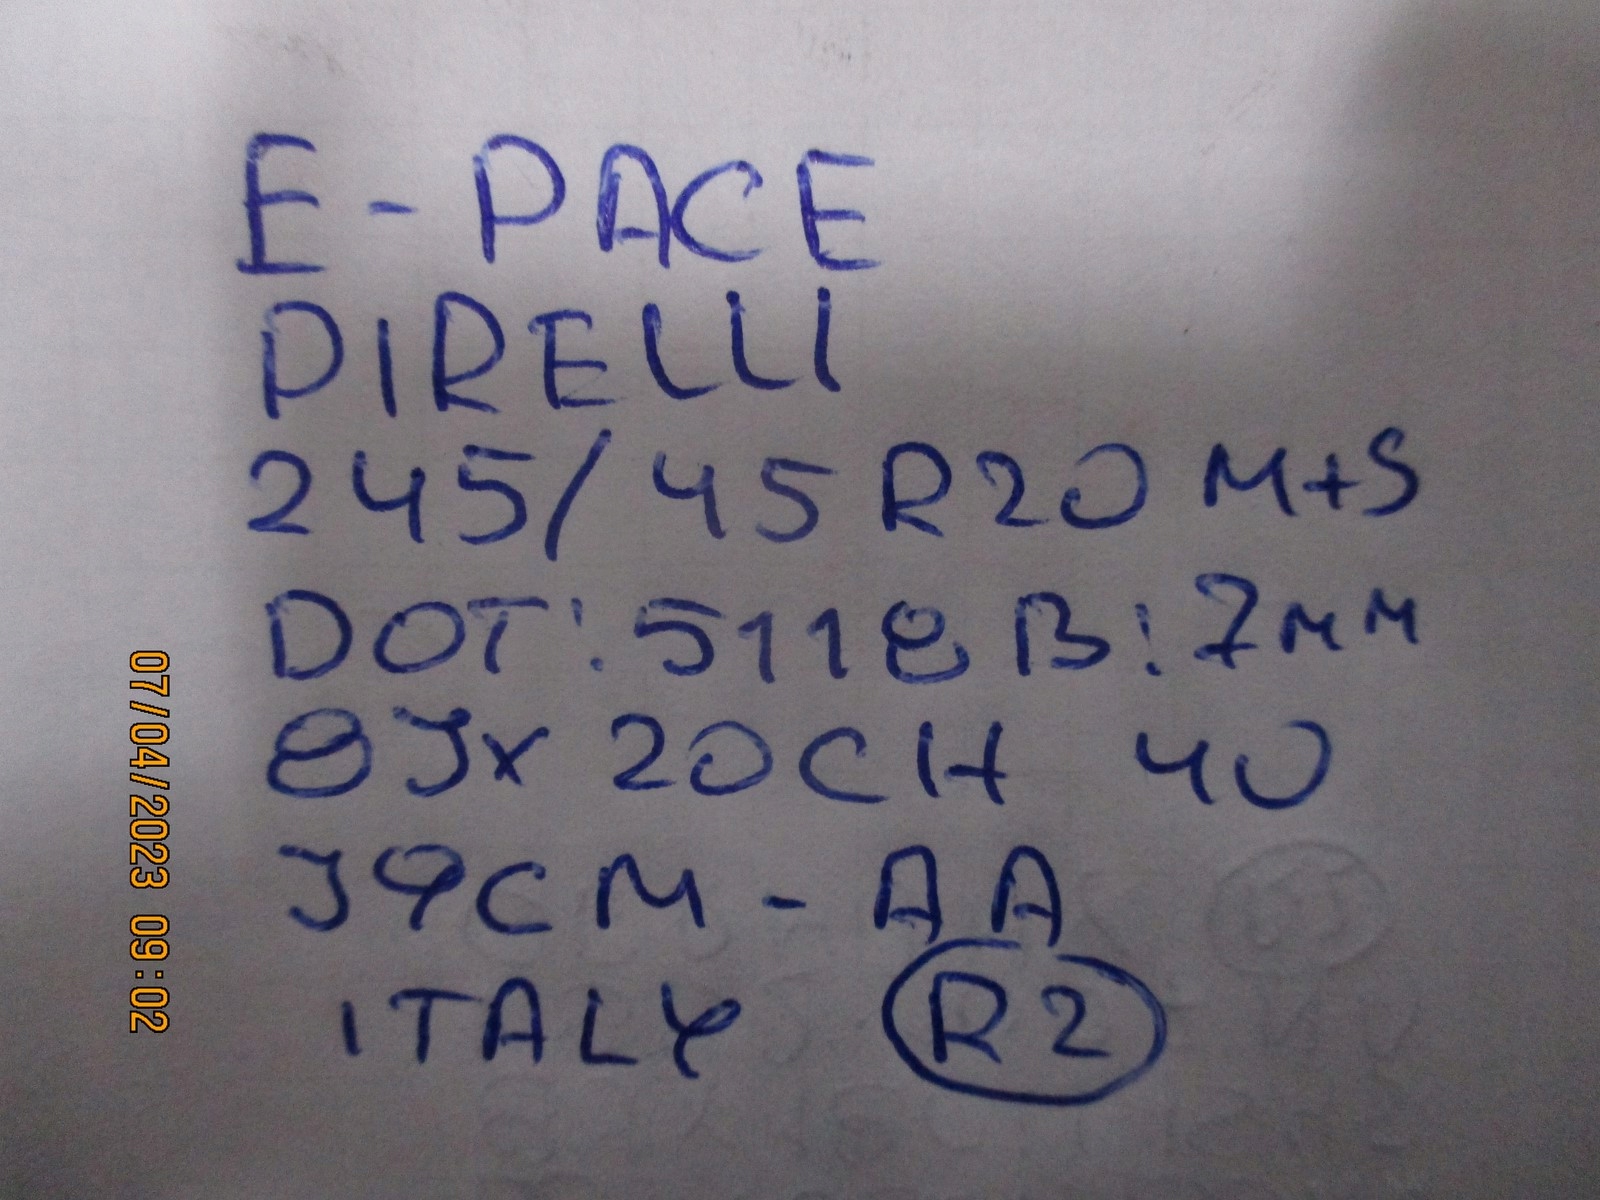 E-PACE
PIRELLI
245/45 R20 M+S
DOT: 5118 B: 7mm
8Jx 20CH 40
J9CM-AA
ITALY R2
07/04/2023 09:02